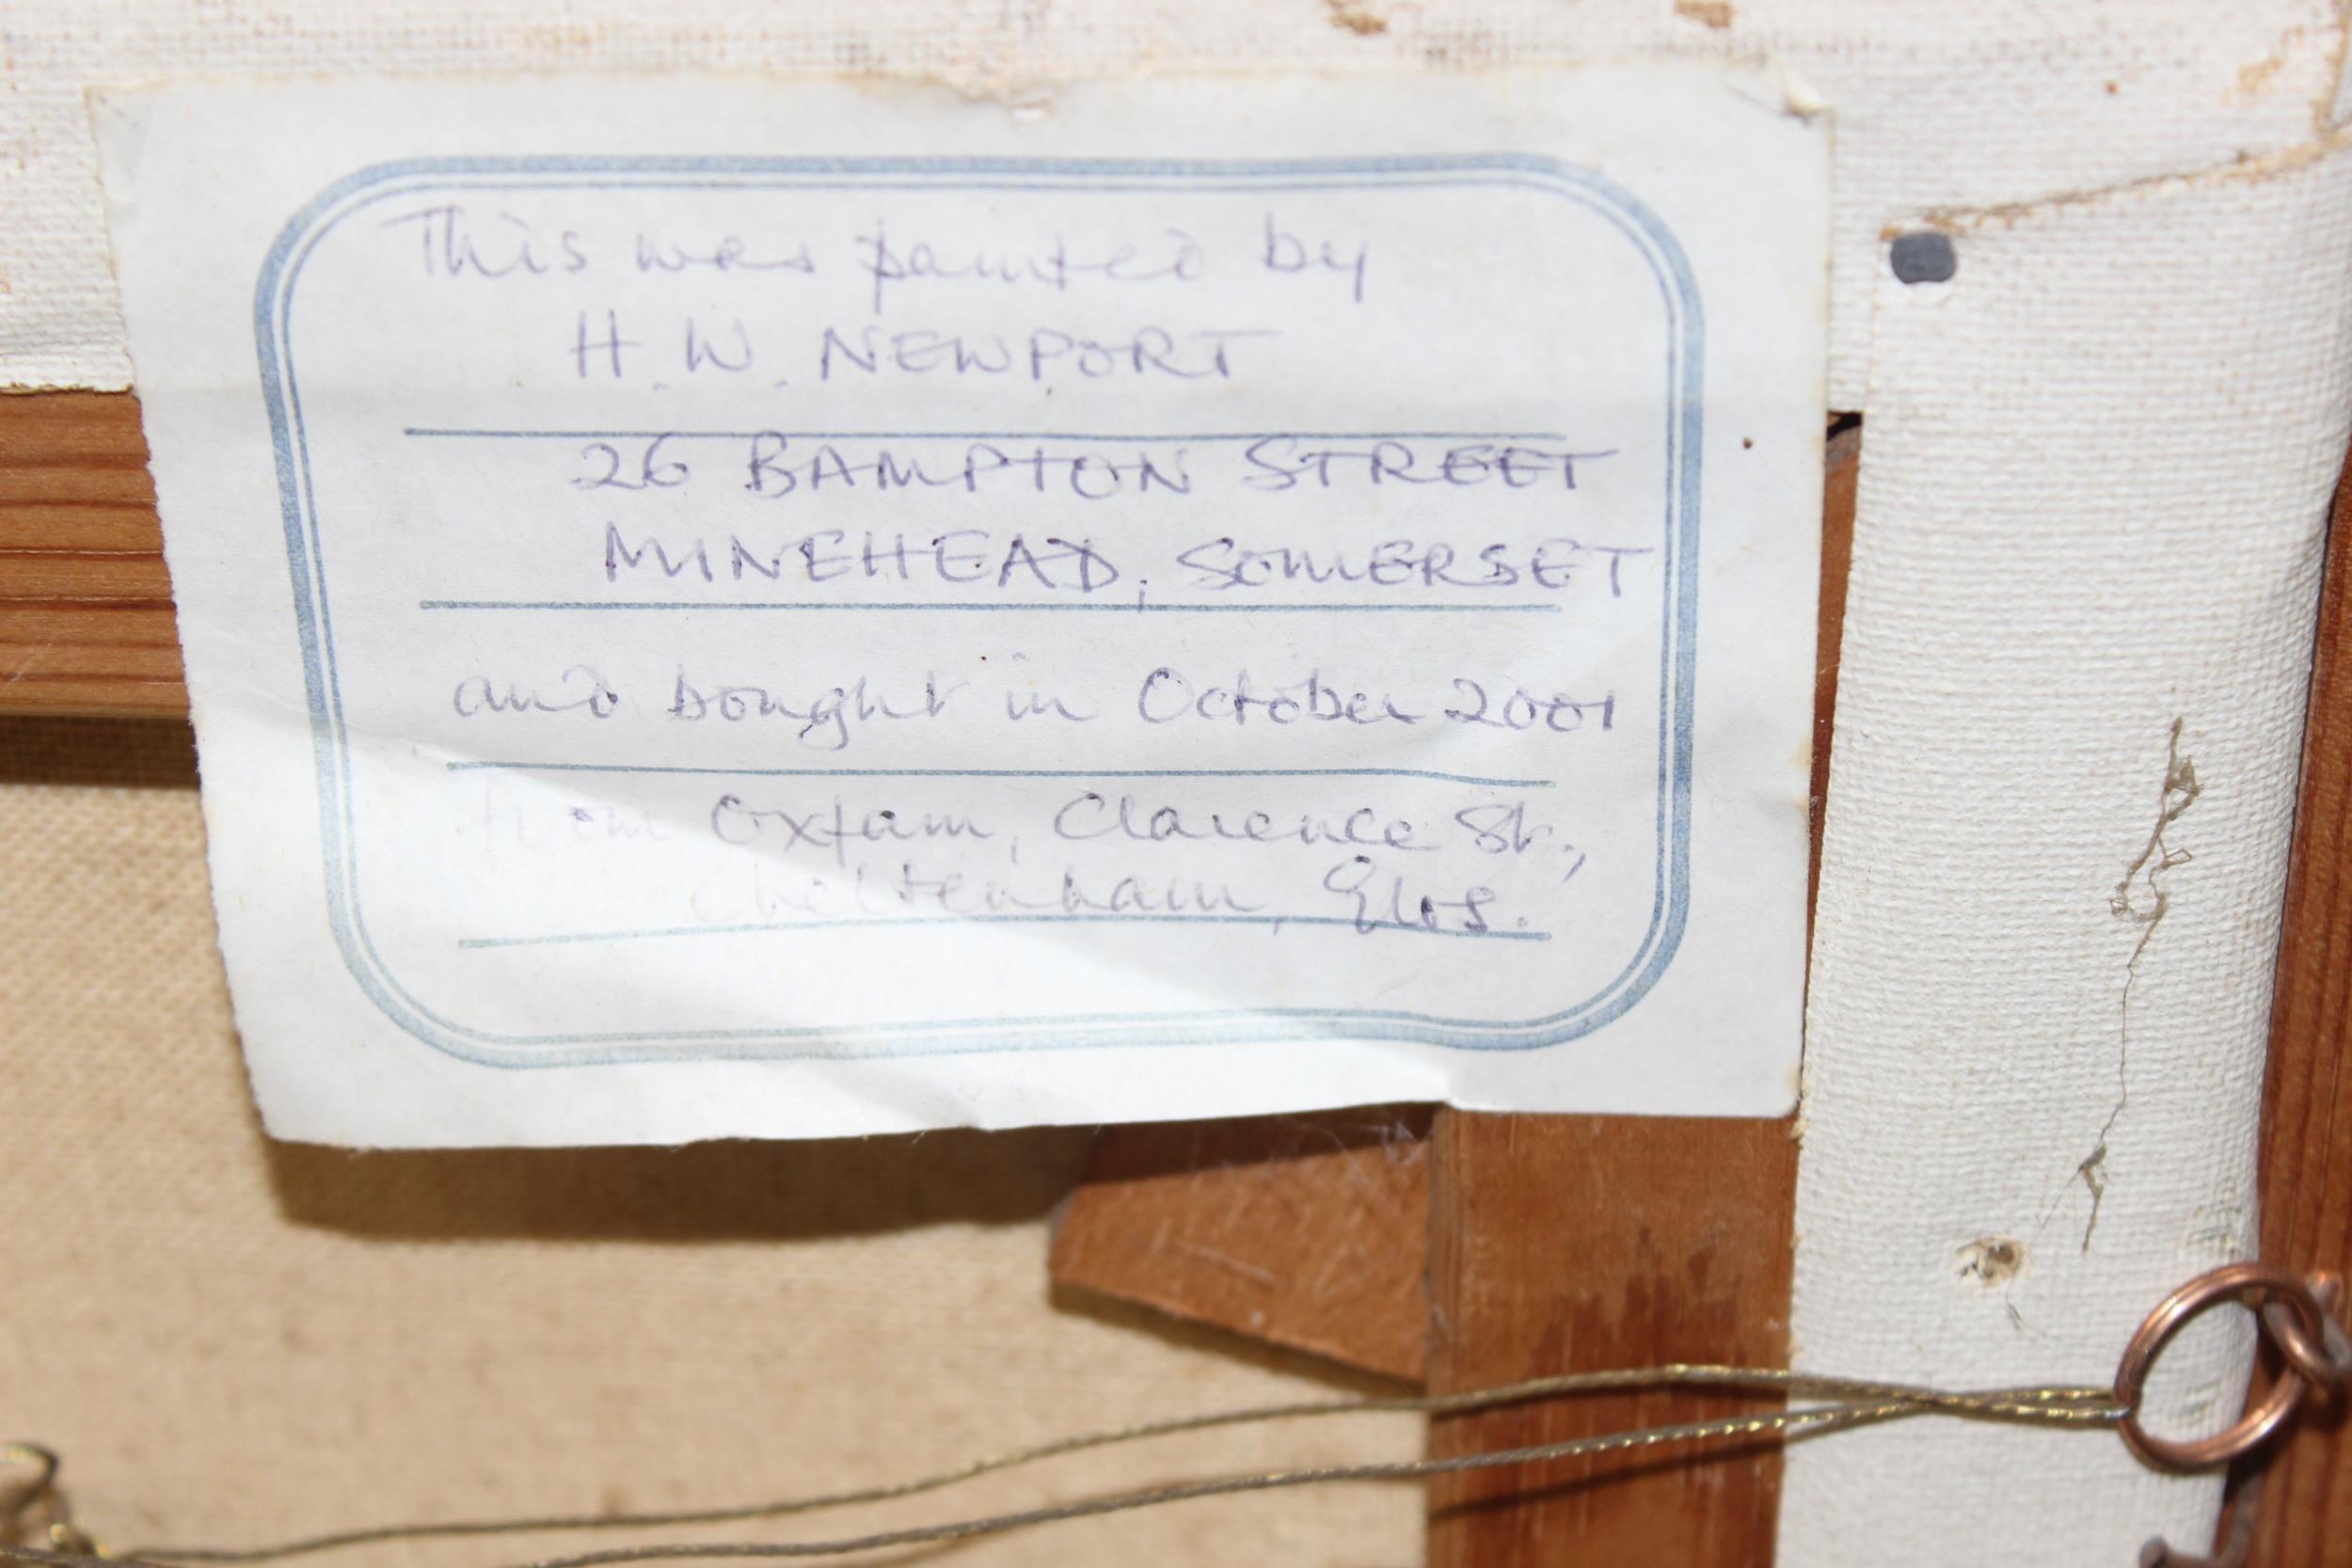 This was painted by
H. W. NEWPORT
26 BAMPTON STREET
MINEHEAD, SOMERSET
and bought in October 2001
from Oxfam, Clarence St.,
Cheltenham, Glos.